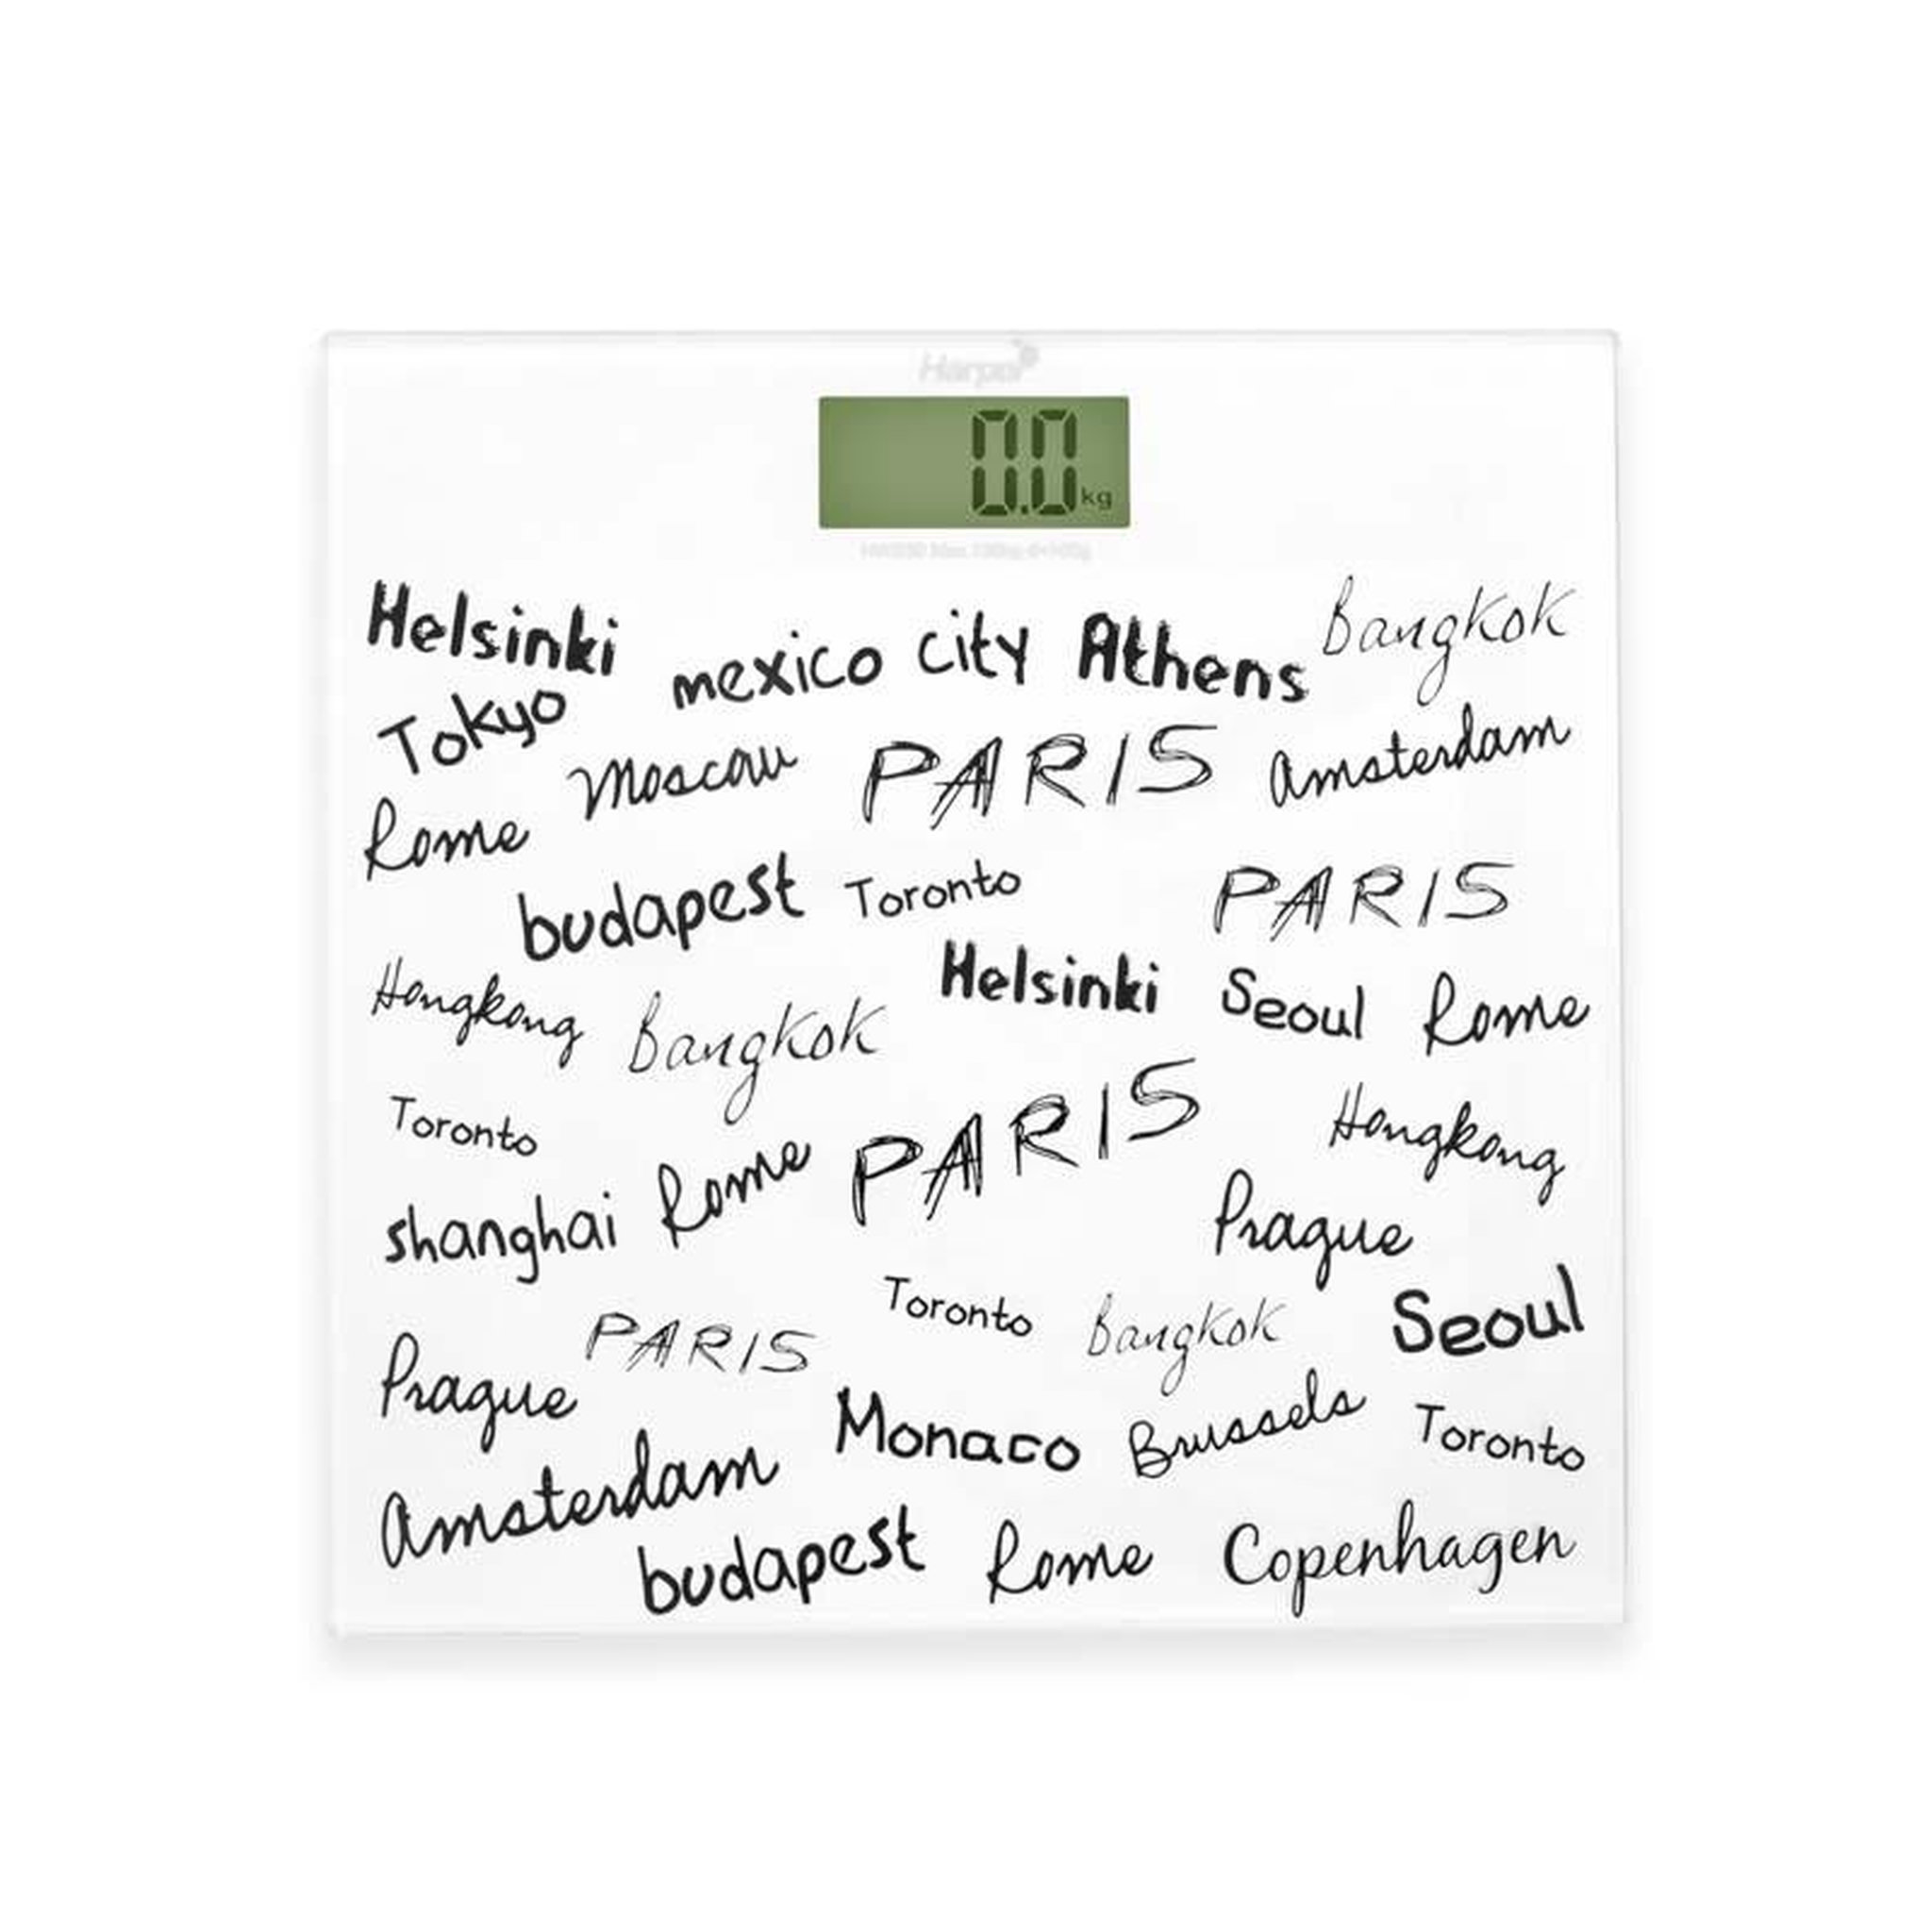 Harper
0.0 kg
Helsinki mexico city Athens Bangkok
Tokyo
Moscow PARIS Amsterdam
Rome
budapest Toronto PARIS
Hongkong Bangkok Helsinki Seoul Rome
Toronto Rome PARIS Hongkong
shanghai Prague
Prague PARIS Toronto Bangkok Seoul
Amsterdam Monaco Brussels Toronto
budapest Rome Copenhagen